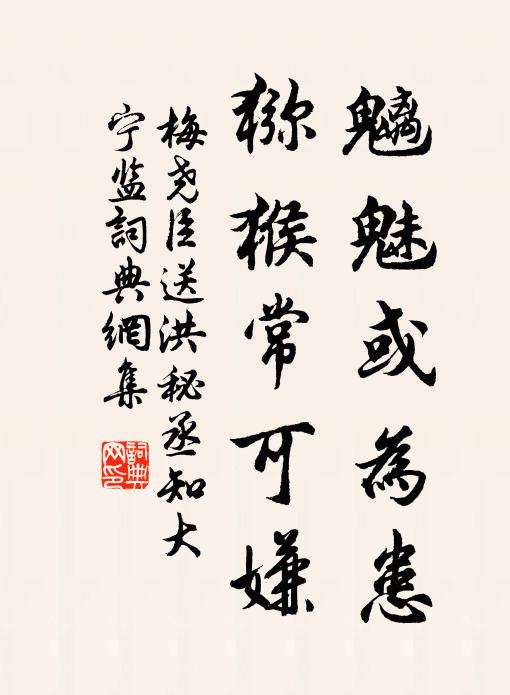 魑魅或為患
猕猴常可嫌
梅尧臣送洪秘丞知大
宁监詞典網集
詞典网印